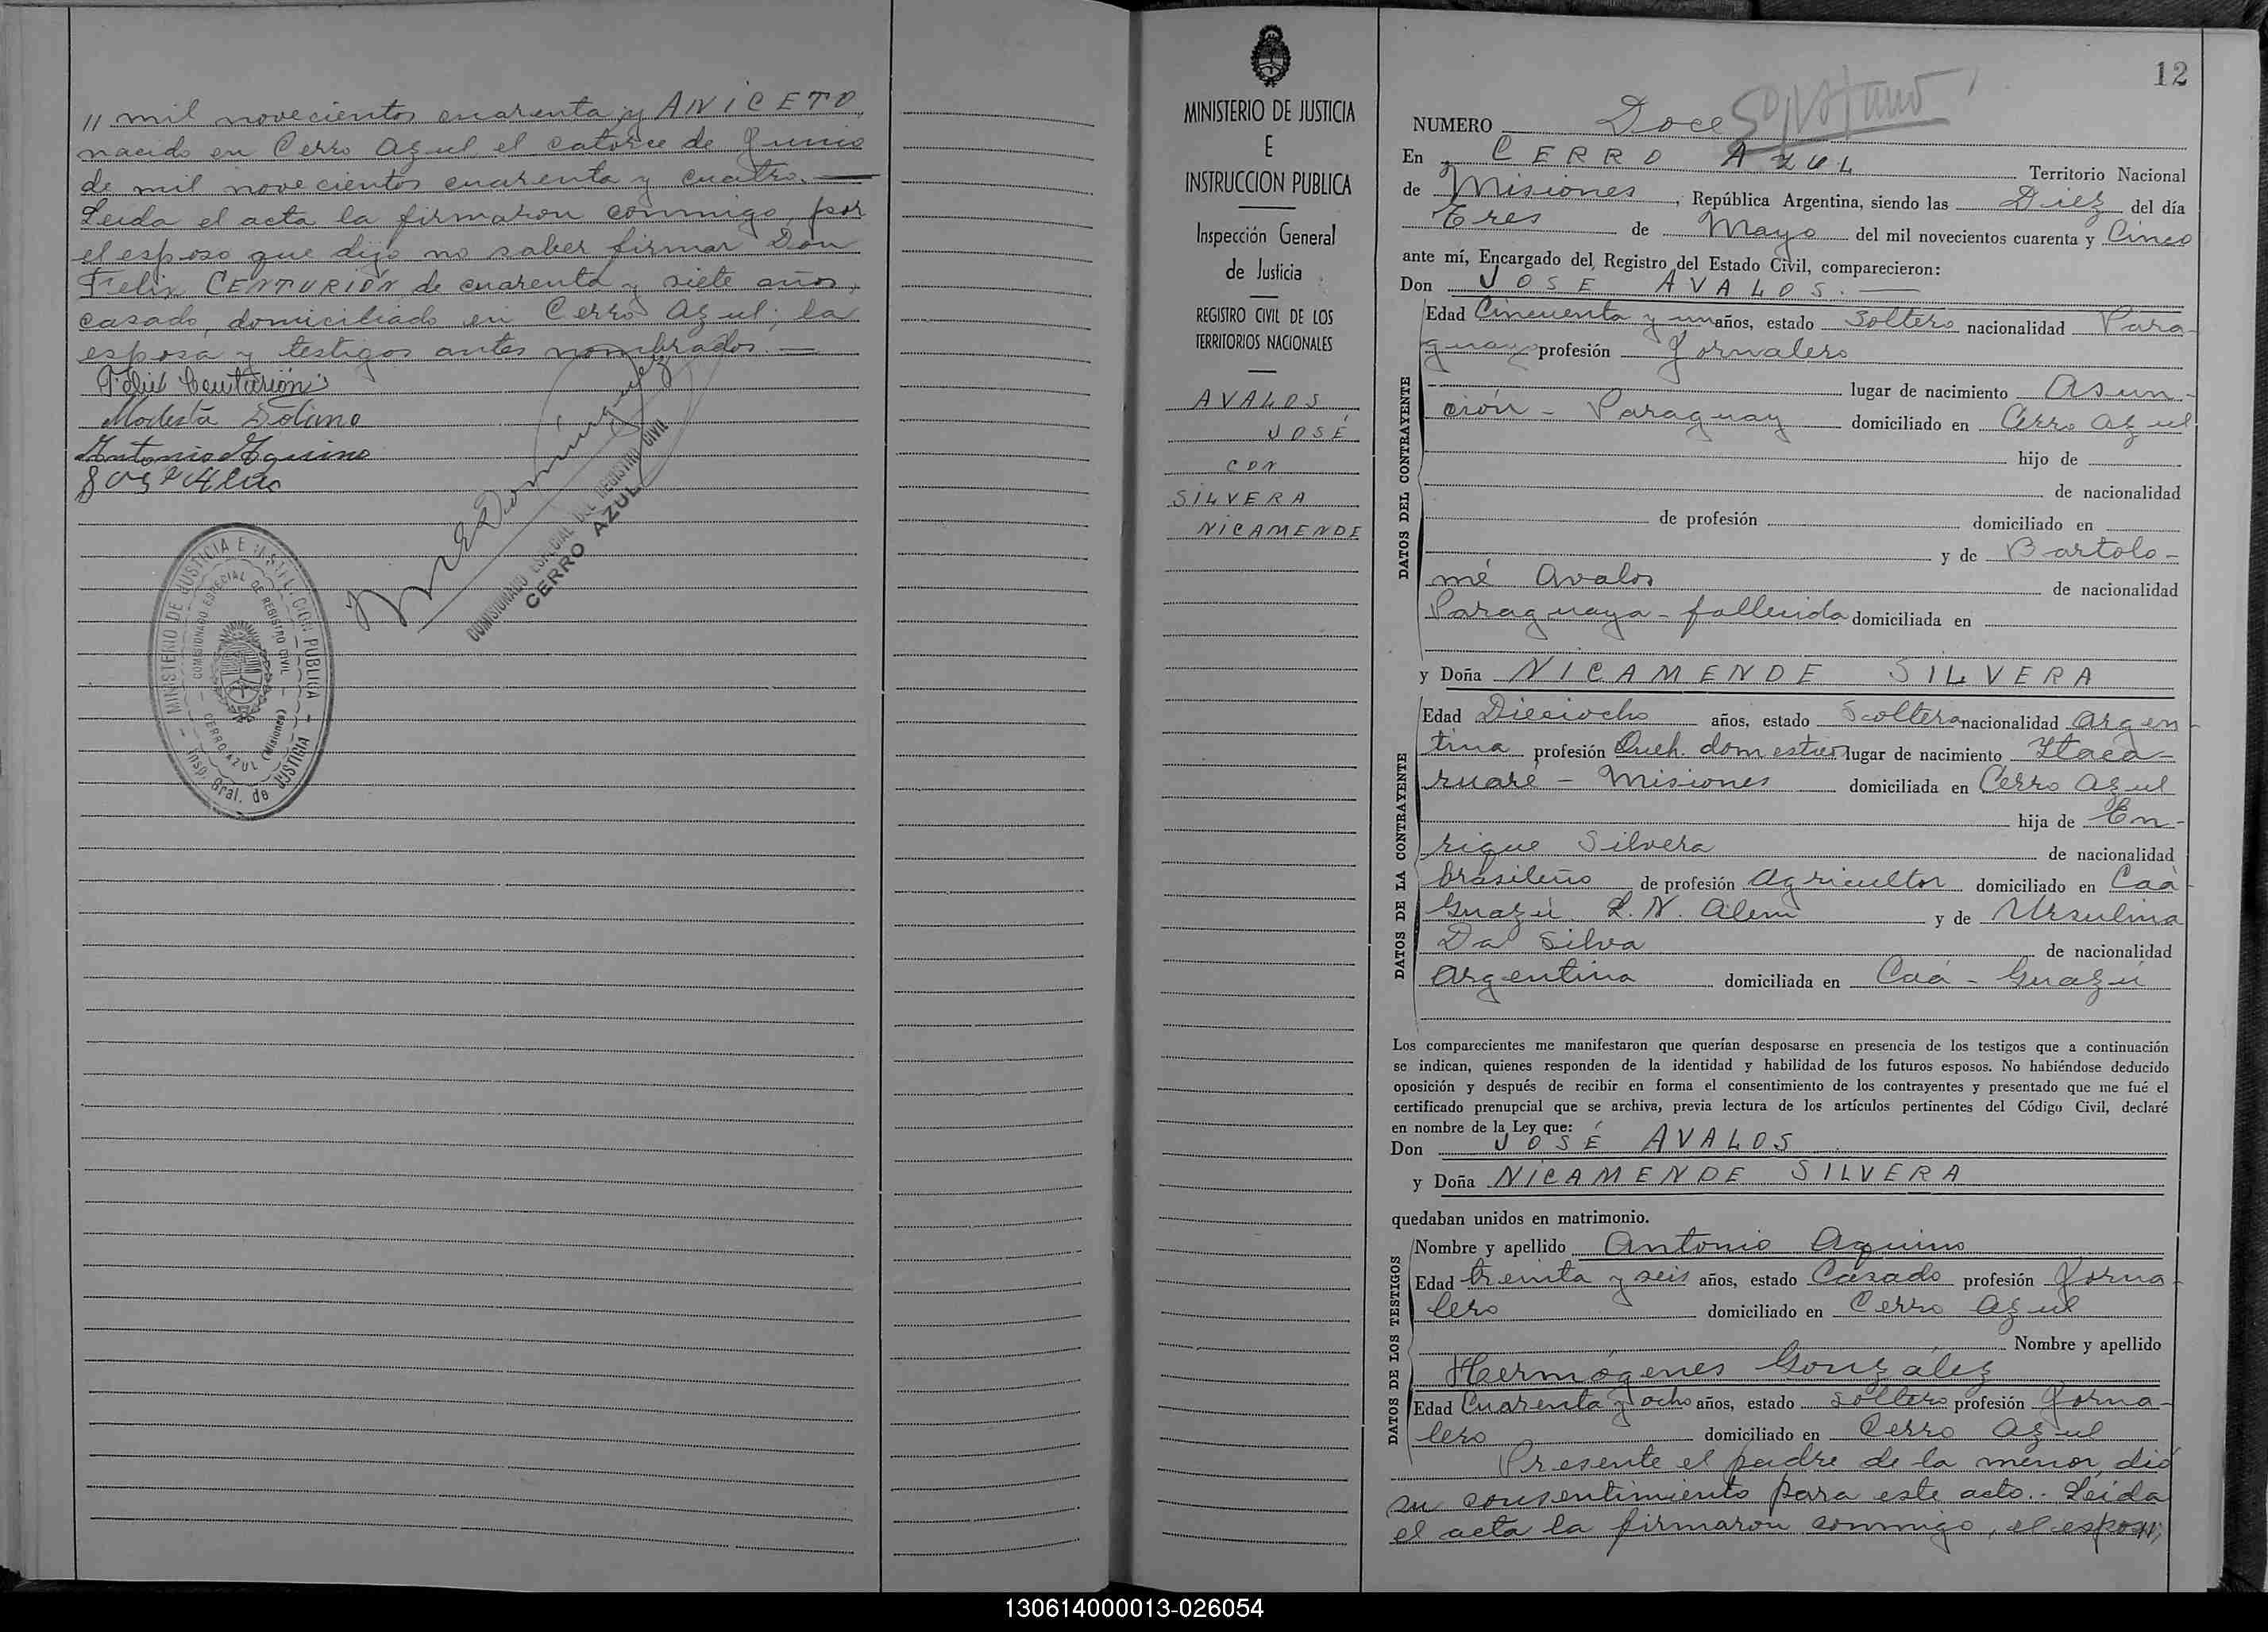 " mil novecientos cuarenta y ANICETO,
nacido en Cerro Azul el catorce de Junio
de mil novecientos cuarenta y cuatro.—
Leida el acta la firmaron conmigo, por
el esposo que dijo no saber firmar Don
Felix CENTURIÓN de cuarenta y siete años,
casado, domiciliado en Cerro Azul; la
esposa y testigos antes nombrados.—
Felix Centurión
Modesta Solano
Antonio Aquino
MINISTERIO DE JUSTICIA E INSTRUCCION PUBLICA
Insp. Gral. de JUSTICIA
COMISIONADO ESPECIAL DE REGISTRO CIVIL
CERRO AZUL (Misiones)
COMISIONADO ESPECIAL DEL REGISTRO CIVIL
CERRO AZUL
MINISTERIO DE JUSTICIA
E
INSTRUCCION PUBLICA
Inspección General
de Justicia
REGISTRO CIVIL DE LOS
TERRITORIOS NACIONALES
AVALOS
JOSÉ
CON
SILVERA
NICAMENDE
12
NUMERO Doce
En CERRO AZUL Territorio Nacional
de Misiones, República Argentina, siendo las Diez del día
Tres de Mayo del mil novecientos cuarenta y Cinco
ante mí, Encargado del Registro del Estado Civil, comparecieron:
Don JOSE AVALOS.—
DATOS DEL CONTRAYENTE
Edad Cincuenta y un años, estado Soltero nacionalidad Para-
guayo profesión Jornalero
lugar de nacimiento Asun-
ción - Paraguay domiciliado en Cerro Azul
hijo de
de nacionalidad
de profesión domiciliado en
y de Bartolo-
mé Avalos de nacionalidad
Paraguaya - fallecida domiciliada en
y Doña NICAMENDE SILVERA
DATOS DE LA CONTRAYENTE
Edad Dieciocho años, estado Soltera nacionalidad Argen-
tina profesión Queh. domesticos lugar de nacimiento Itaca-
ruaré - Misiones domiciliada en Cerro Azul
hija de En-
rique Silvera de nacionalidad
brasileño de profesión Agricultor domiciliado en Caá-
Guazú L. N. Alem y de Ursulina
Da Silva de nacionalidad
Argentina domiciliada en Caá - Guazú
Los comparecientes me manifestaron que querían desposarse en presencia de los testigos que a continuación
se indican, quienes responden de la identidad y habilidad de los futuros esposos. No habiéndose deducido
oposición y después de recibir en forma el consentimiento de los contrayentes y presentado que me fué el
certificado prenupcial que se archiva, previa lectura de los artículos pertinentes del Código Civil, declaré
en nombre de la Ley que:
Don JOSÉ AVALOS
y Doña NICAMENDE SILVERA
quedaban unidos en matrimonio.
DATOS DE LOS TESTIGOS
Nombre y apellido Antonio Aquino
Edad treinta y seis años, estado Casado profesión Jorna-
lero domiciliado en Cerro Azul
Nombre y apellido
Hermógenes González
Edad Cuarenta y ocho años, estado Soltero profesión Jorna-
lero domiciliado en Cerro Azul
Presente el padre de la menor, dió
su consentimiento para este acto.- Leida
el acta la firmaron conmigo, el espos
130614000013-026054